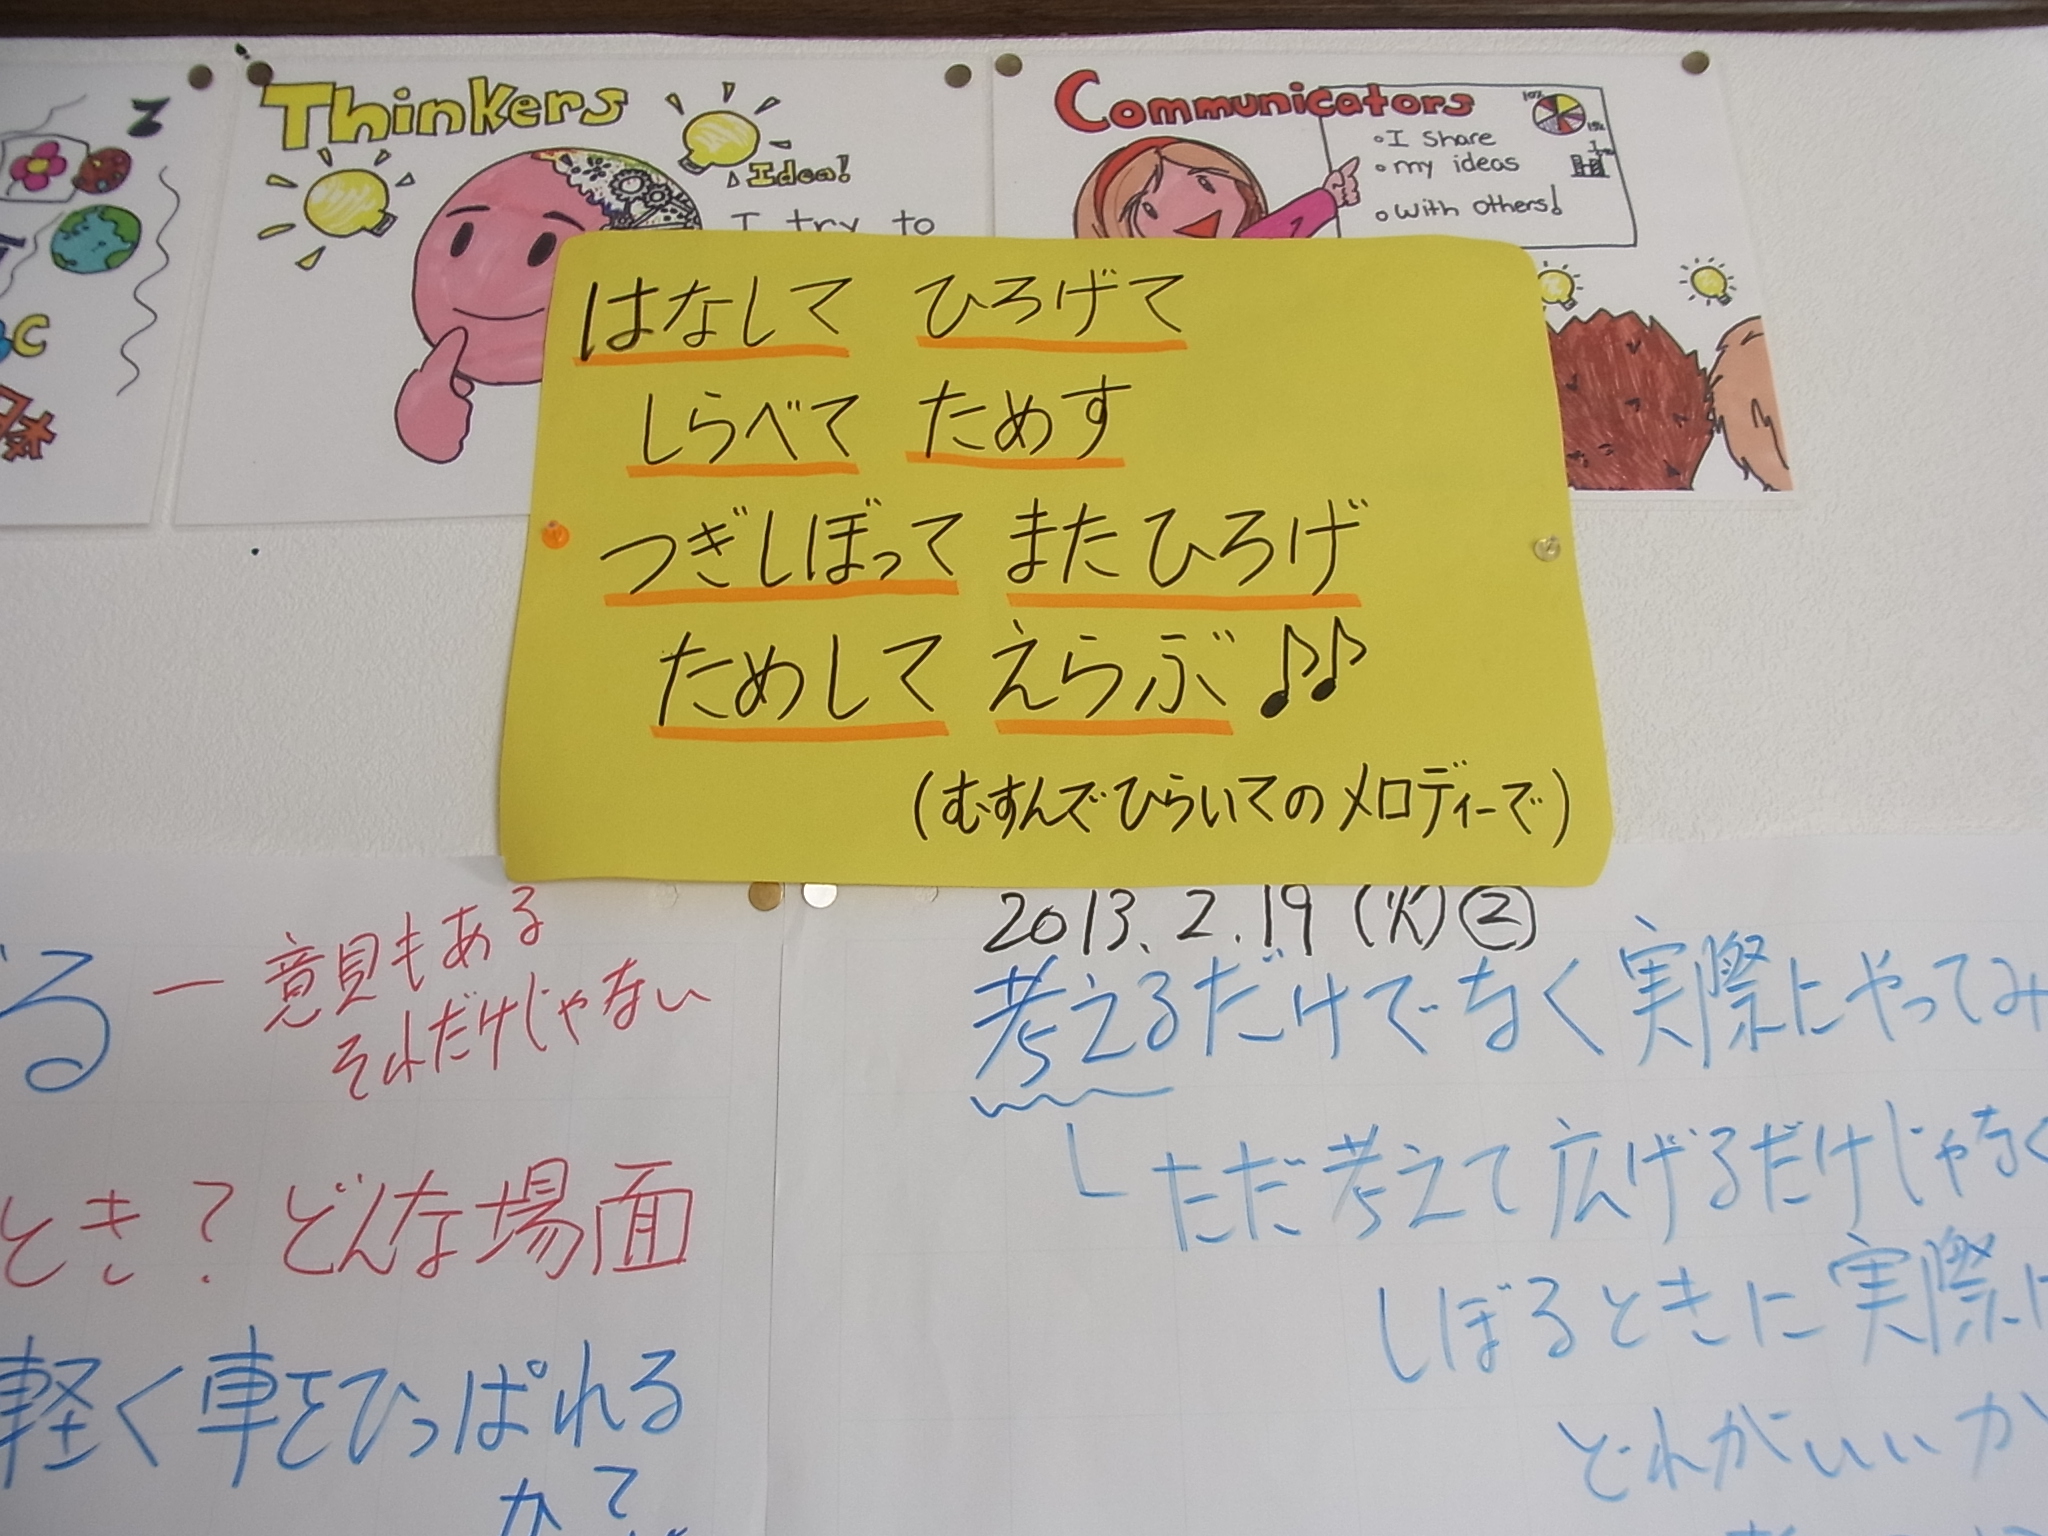 Z
C
日本
Thinkers
Idea!
I try to
Communicators
I share
my ideas
with others!
はなして ひろげて
しらべて ためす
つぎしぼって またひろげ
ためして えらぶ♪♪
(むすんでひらいてのメロディーで)
る ー 意見もある
それだけじゃない
とき?どんな場面
軽く車をひっぱれる
か て
2013.2.19(火)②
考えるだけでなく実際にやってみ
ただ考えて広げるだけじゃなく
しぼるときに実際に
どれがいいか